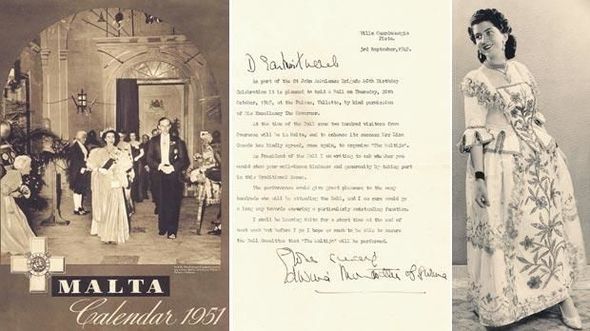 MALTA
Calendar 1951
Villa Guardamangia
Pieta.
3rd September, 1949.
As part of the St John Ambulance Brigade 40th Birthday
Celebration it is planned to hold a Ball on Thursday, 20th
October, 1949, at the Palace, Valletta, by kind permission
of His Excellency The Governor.
At the time of the Ball some two hundred visitors from
Overseas will be in Malta, and to enhance its success
has kindly agreed, once again, to organise "The Maltija".
As President of the Ball I am writing to ask whether you
would show your well-known kindness and generosity by taking part
in this Traditional Dance.
The performance would give great pleasure to the many
hundreds who will be attending the Ball, and I am sure would go
a long way towards ensuring a particularly outstanding function.
I shall be leaving Malta for a short time at the end of
next week but before I go I hope so much to be able to assure
the Ball Committee that "The Maltija" will be performed.
Yours sincerely
Edwina Mountbatten of Burma